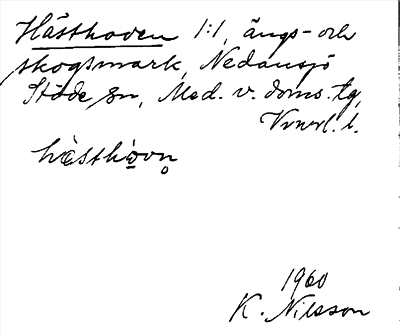 Hästhoven 1:1, ängs- och
skogsmark, Nedansjö
Stöde sn, Med. v. doms. tg,
l.
hὲsthòvn̥
1960
K. Nilsson